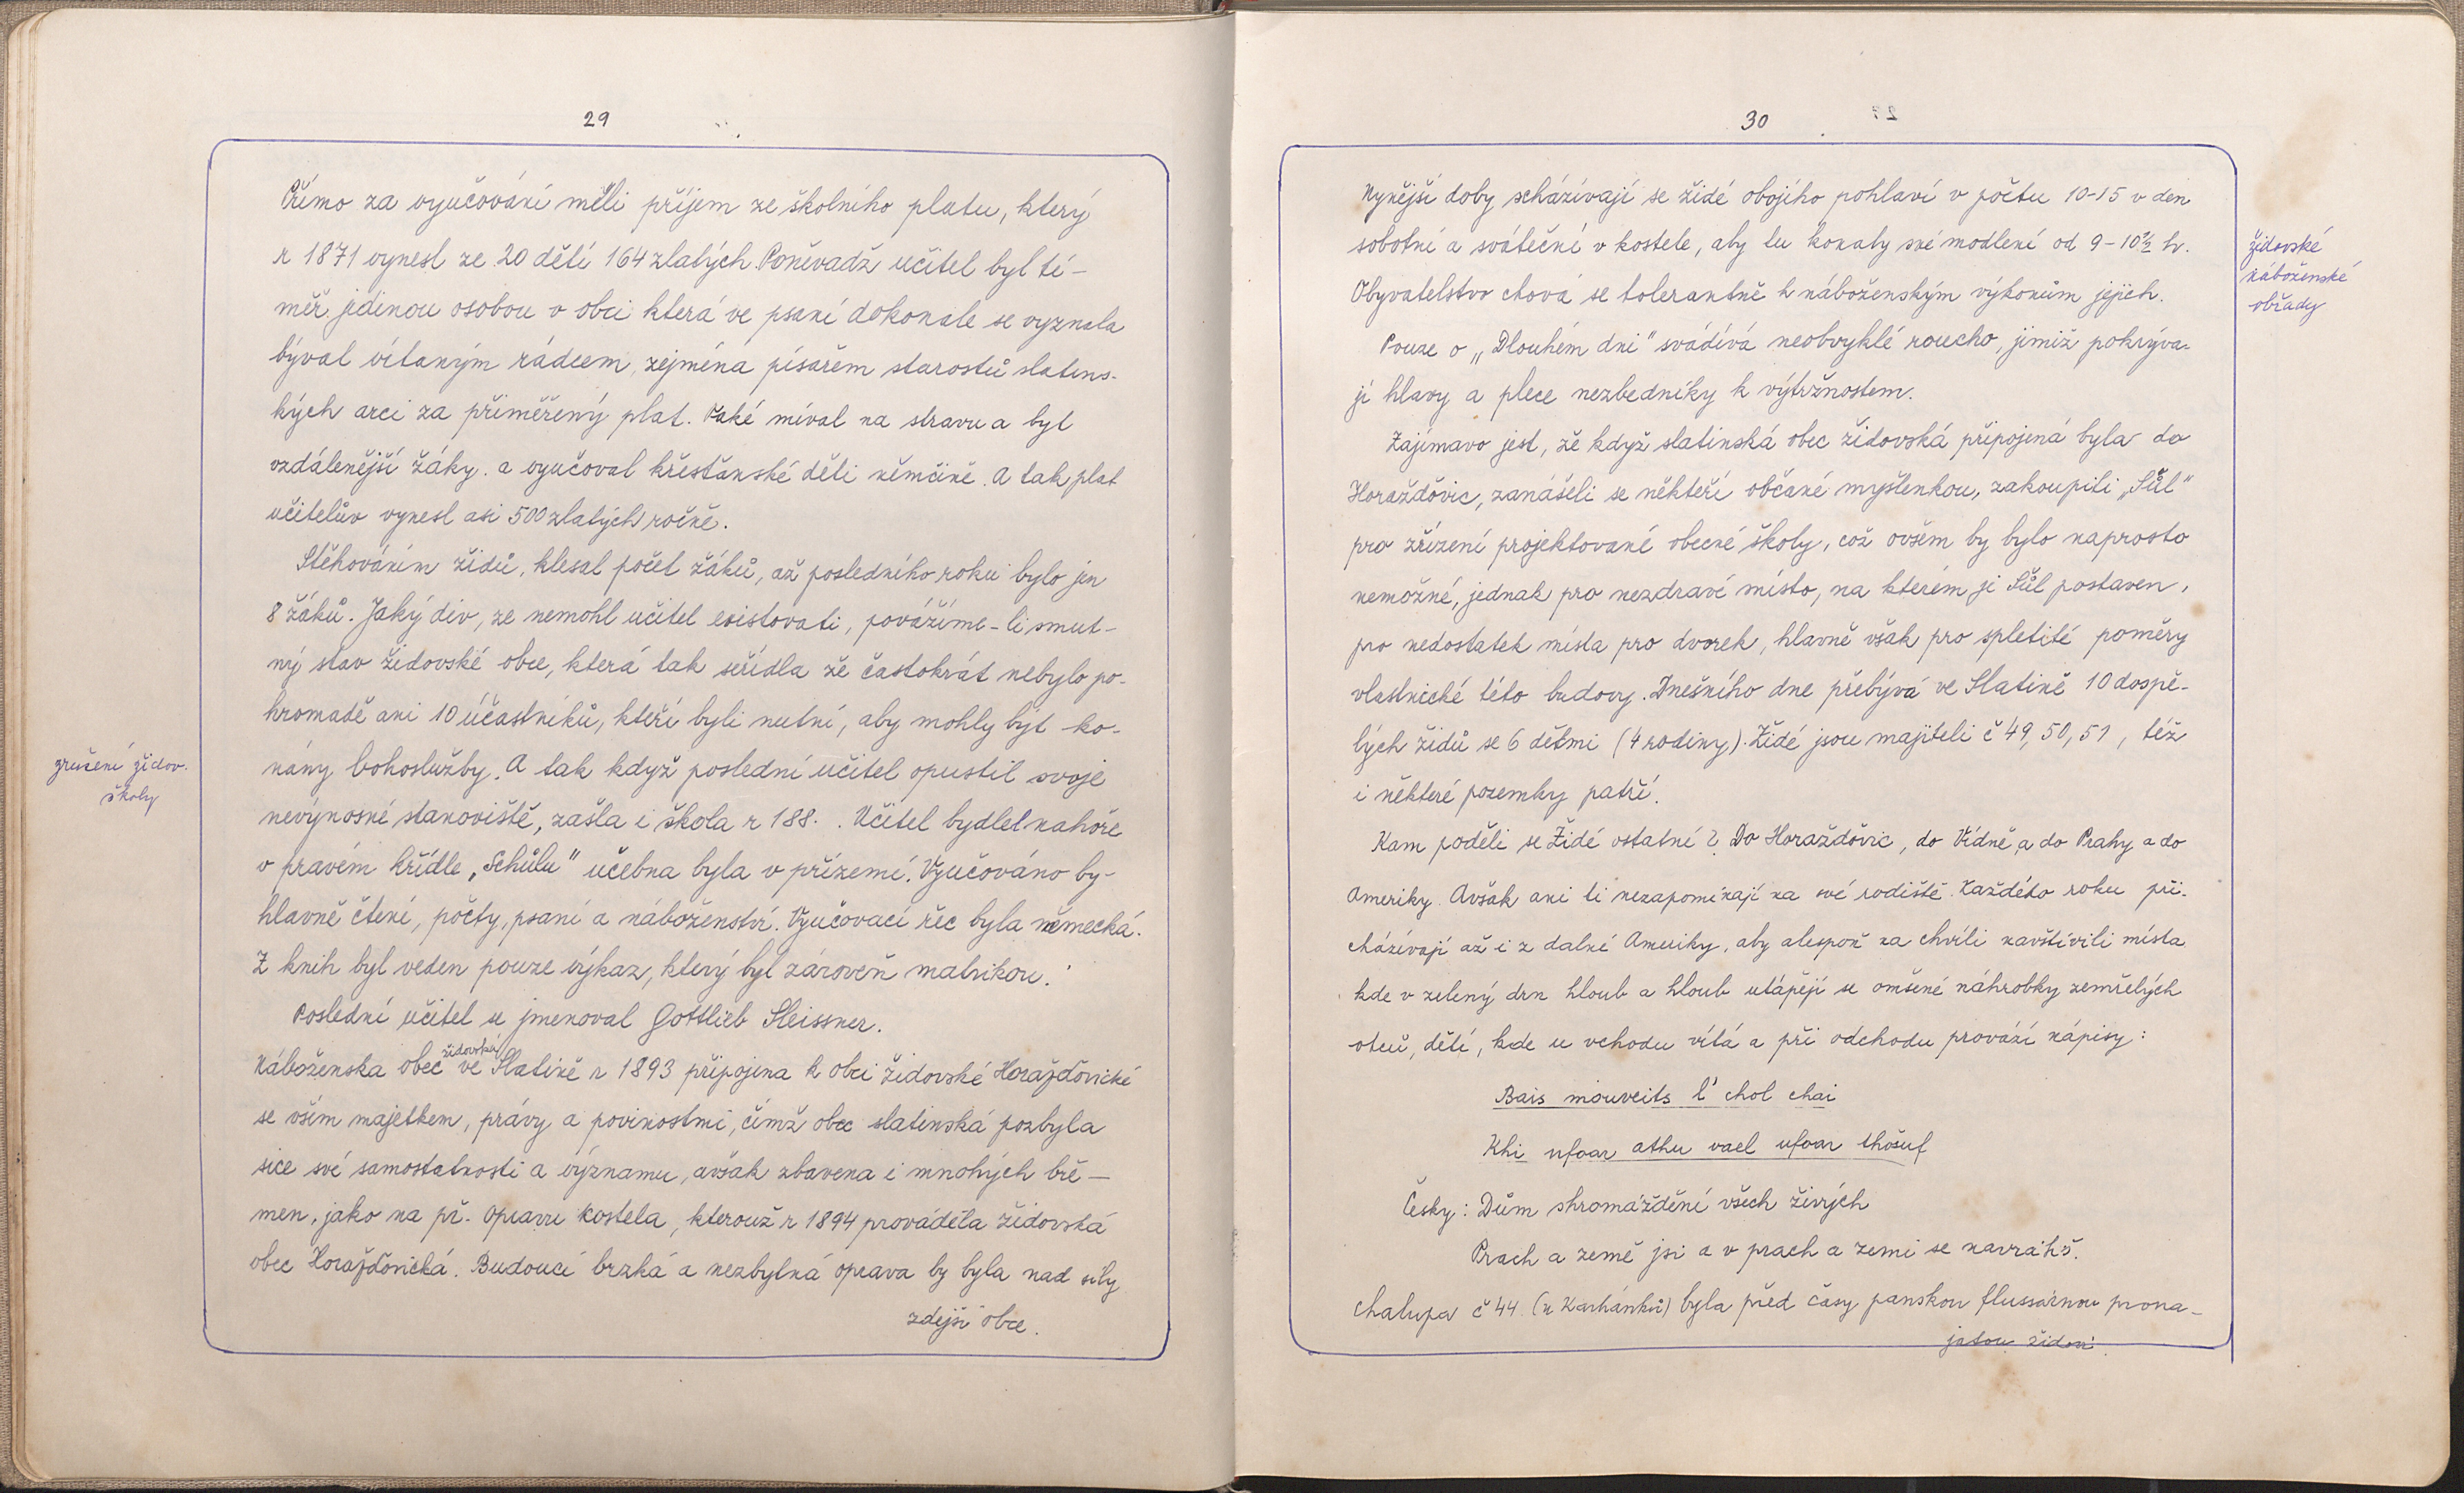 29
Přímo za vyučování měli příjem ze školního platu, který
r 1871 vynesl ze 20 dětí 164 zlatých. Poněvadž učitel byl té-
měř jedinou osobou v obci která ve psaní dokonale se vyznala
býval vítaným rádcem, zejména písařem starostů slatins-
kých arci za přiměřený plat. Také míval na stravu a byt
vzdálenější žáky. a vyučoval křesťanské děti němčině. A tak plat
učitelův vynesl asi 500 zlatých ročně.
Stěhováním židů, klesal počet žáků, až posledního roku bylo jen
8 žáků. Jaký div, ze nemohl učitel existovati, povážíme-li smut-
ný stav židovské obce, která tak seřídla že častokrát nebylo po-
hromadě ani 10 účastníků, kteří byli nutní, aby mohly být ko-
nány bohoslužby. A tak když poslední učitel opustil svoje
zrušení židov.
školy
nevýnosné stanoviště, zašla i škola r 188. . Učitel bydlel nahoře
v pravém křídle „Schůlu" učebna byla v přízemí. Vyučováno by-
hlavně čtení, počty, psaní a náboženství. Vyučovací řec byla německá.
Z knih byl veden pouze výkaz, který byl zároveň matrikou.
Poslední učitel se jmenoval Gottlieb Sleissner.
židovská
Náboženska obec ve Slatině r 1893 připojena k obci židovské Horažďovické
se vším majetkem, právy a povinostmi, čímž obec slatinská pozbyla
sice své samostatnosti a významu, avšak zbavena i mnohých bře-
men, jako na př. opravu kostela, kterouž r 1894 prováděla židovská
obec Horažďovická. Budoucí brzká a nezbytná oprava by byla nad síly
zdejší obce.
30
Nynější doby scházívají se židé obojího pohlaví v počtu 10-15 v den
sobotní a sváteční v kostele, aby tu konaly své modlení od 9-10½ h.
židovské
náboženské
obřady
Obyvatelstvo chová se tolerantně k náboženským výkonům jejich.
Pouze o „Dlouhém dni" svádívá neobvyklé roucho, jimiž pokrýva-
jí hlavy a plece nezbedníky k výtržnostem.
Zajímavo jest, že když slatinská obec židovská připojená byla do
Horažďovic, zanášeli se někteří občané myšlenkou, zakoupiti „Šůl"
pro zřízení projektované obecné školy, což ovšem by bylo naprosto
nemožné, jednak pro nezdraví místo, na kterém je Šůl postaven,
pro nedostatek místa pro dvorek, hlavně však pro spletité poměry
vlastnické této budovy. Dnešního dne přebývá ve Slatině 10 dospě-
lých židů se 6 dětmi (4 rodiny). Židé jsou majiteli č 49, 50, 51, též
i některé pozemky patří.
Kam poděli se Židé ostatní? Do Horažďovic, do Vídně, a do Prahy a do
Ameriky. Avšak ani ti nezapomínají na své rodiště. Každého roku při-
cházívají až i z dalné Ameriky, aby alespoň na chvíli navštívili místa
kde v zelený drn hloub a hloub utápějí se omšené náhrobky zemřelých
otců, dětí, kde u vchodu vítá a při odchodu provází nápisy:
Bais mouveits l' chol chai
Khi ufoar athu vael ufoar thošuf
Česky: Dům shromáždění všech živých
Prach a země jsi a v prach a zemi se navrátíš.
Chalupa č 44. (u Karhánků) byla před časy panskou flussárnou prona-
jatou židovi.